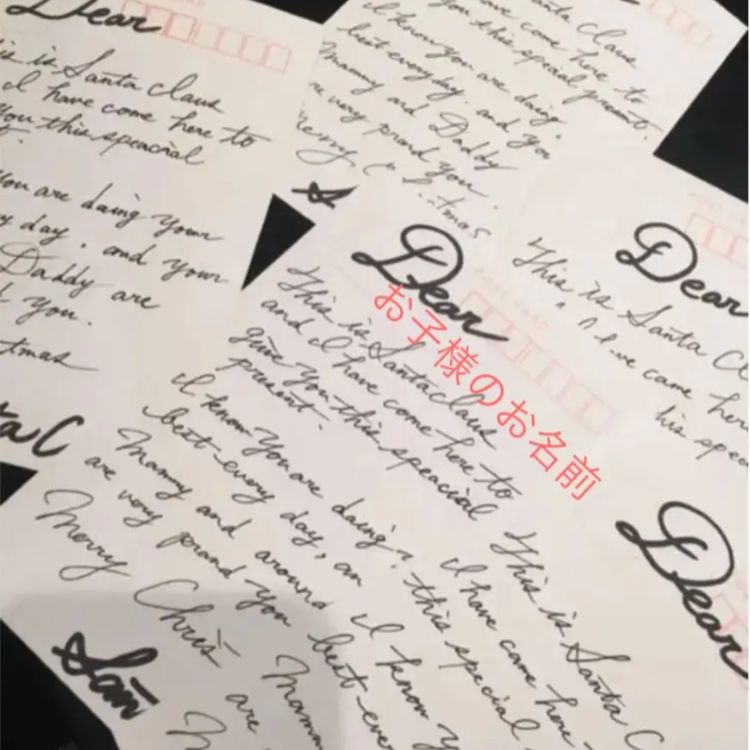 Dear
is is Santa Claus
I have come here to
you this speacial
you are daing your
y day, and your
Daddy are
d you.
tmas
ta C
Santa Claus
ve come here to
you this special present.
I know you are daing,
best everyday, and you
Mammy and Daddy
re very proud you.
tmas
Dear
お子様のお名前
This is Santaclaus
and I have come here to
give you this speacial
present.
I know you are daing
best every day, an
Mammy and around
are very prand you
Merry Chris
San
Dear
This is Santa Cl
ve came her
his spea
Dear
This is Santa C
I have came here
this special
I know y
best ever
Mamm
are